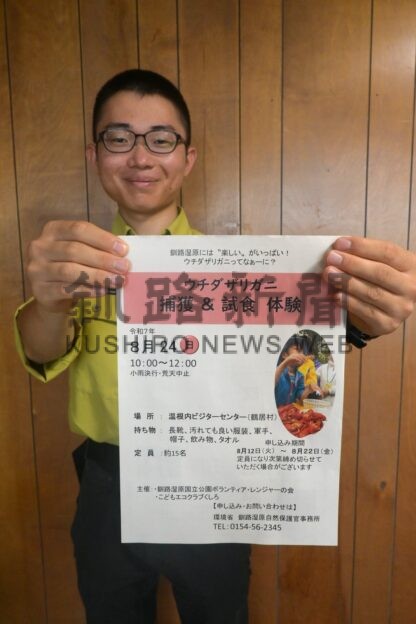 釧路湿原には“楽しい”がいっぱい!
ウチダザリガニってなぁーに?
ウチダザリガニ
捕獲 & 試食 体験
釧路新聞
KUSHIRO NEWS WEB
令和7年
8月24 日
10:00~12:00
小雨決行・荒天中止
場 所 : 温根内ビジターセンター(鶴居村)
持ち物 : 長靴、汚れても良い服装、軍手、
帽子、飲み物、タオル
定 員 : 約15名
申し込み期間
8月12日(火) ~ 8月22日(金)
定員になり次第締め切らせて
いただく場合がございます
主催 ・釧路湿原国立公園ボランティア・レンジャーの会
・こどもエコクラブくしろ
【申し込み・お問い合わせは】
環境省 釧路湿原自然保護官事務所
TEL:0154-56-2345